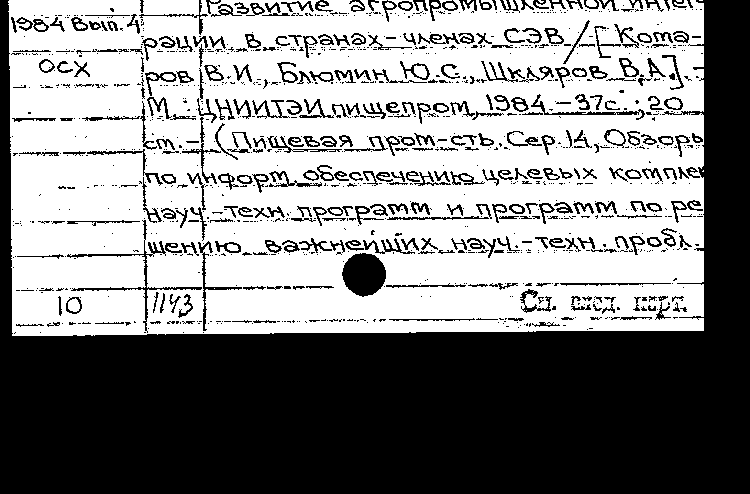 Развитие агропромышленной интег-
1984 Вып. 4
рации в странах-членах СЭВ / [Кома-
осх
ров В.И., Блюмин Ю.С., Шкляров В.А.]. -
М.: ЦНИИТЭИпищепром, 1984. - 37с.; 20
см. - (Пищевая пром-сть. Сер. 14, Обзоры
по информ. обеспечению целевых комплек
науч.-техн. программ и программ по ре
шению важнейших науч.-техн. пробл.
10 1143 См. след. карт.